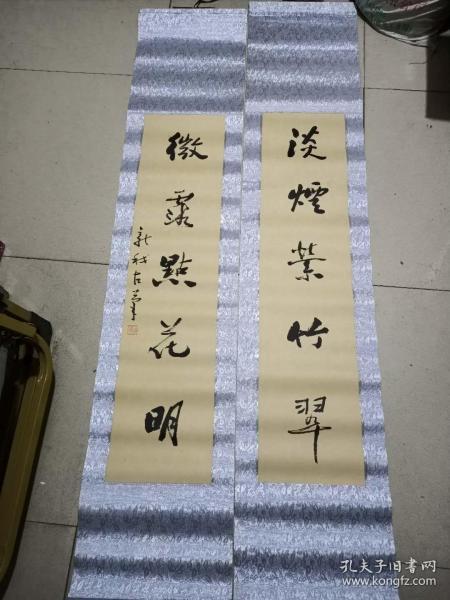 淡煙縈竹翠
微露點花明
新秋
孔夫子旧书网
www.kongfz.com